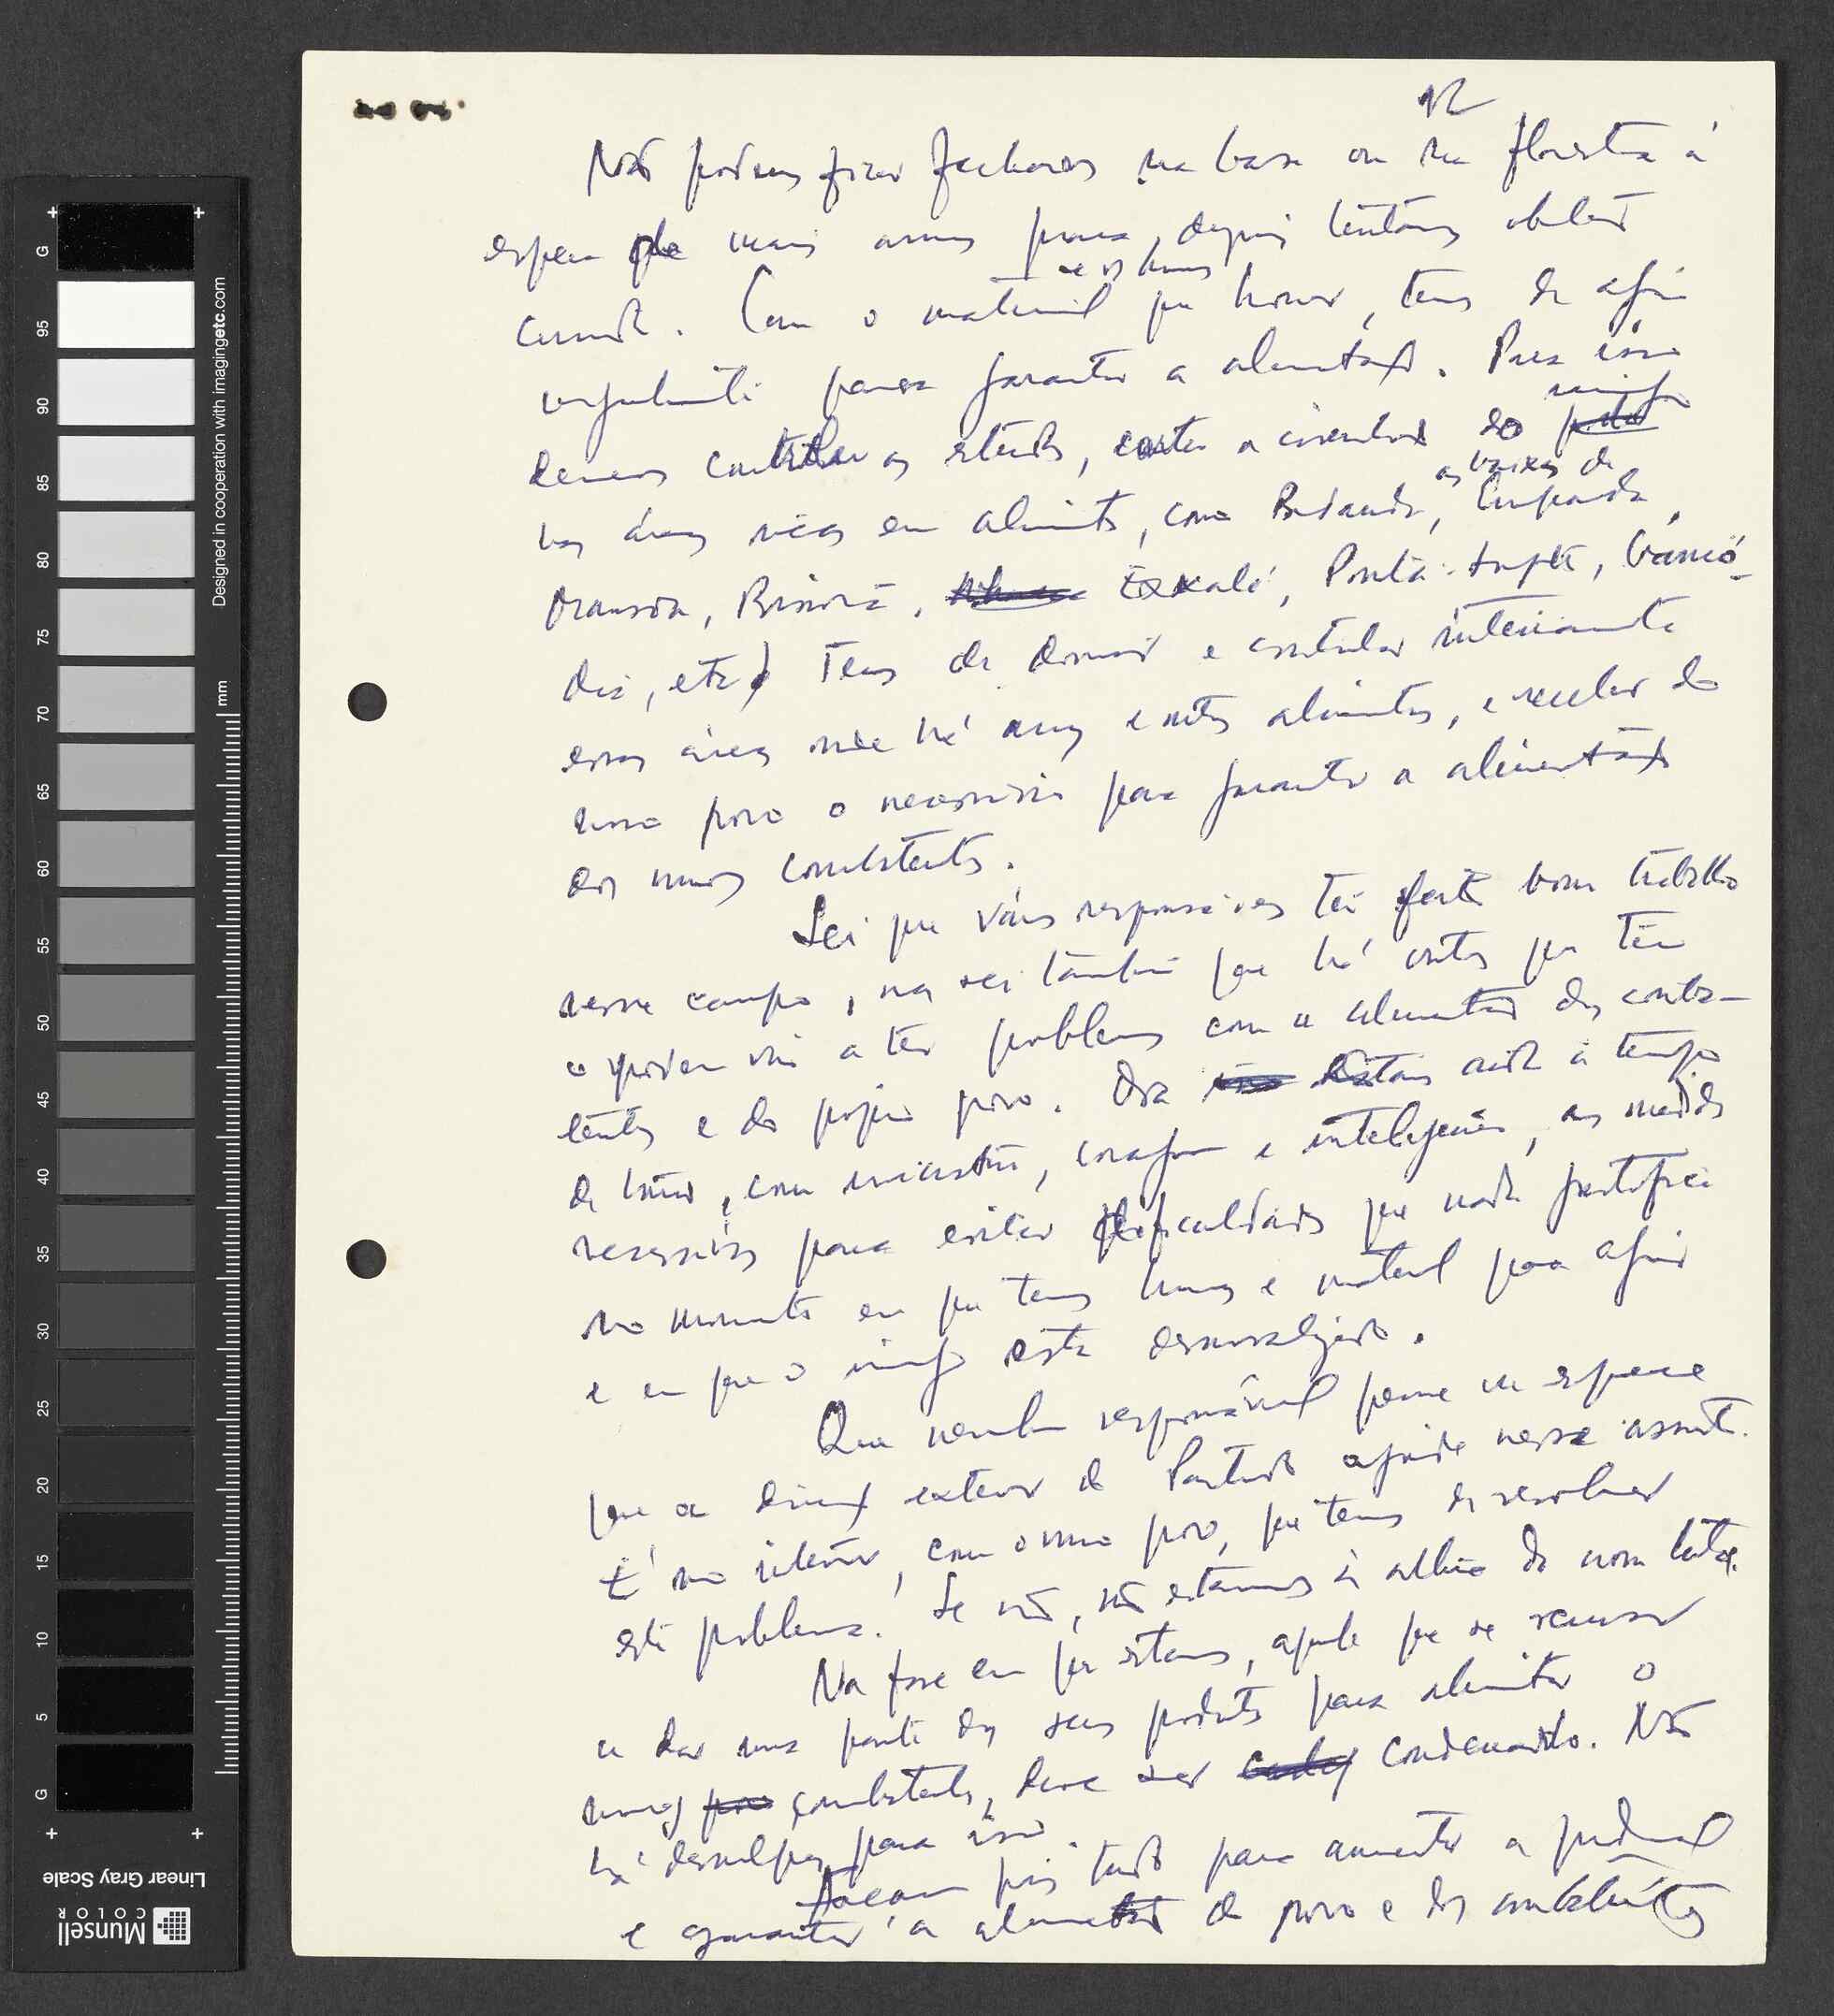 12
Não podemos ficar fechados na base ou na floresta à
espera de mais armas para, depois tentarmos obter
comida. Com o material que temos, temos de agir
e os homens
urgentemente para garantir a alimentação. Para isso
inimigo
devemos controlar as estradas, cortar a circulação do
nas áreas ricas em alimentos, como Bedanda, Cumpada,
as baixas de
Mansoa, Bissorã, Enxalé, Ponta-Inglês,
etc. Temos de dominar e controlar inteiramente
essas áreas onde há arroz e outros alimentos, e receber do
nosso povo o necessário para garantir a alimentação
dos nossos combatentes.
Sei que vários responsáveis têm feito bom trabalho
nesse campo, mas sei também que há outros que têm
e podem vir a ter problemas com a alimentação dos comba-
tentes e do próprio povo. Ora estamos ainda a tempo
de tomar, com iniciativa, coragem e inteligência, as medidas
necessárias para evitar dificuldades que nada justifica
no momento em que temos homens e material para agir
e em que o inimigo está desmoralizado.
Que nenhum responsável pense ou espere
que a direcção exterior do Partido ajude nesse assunto.
É no interior, com o nosso povo, que temos de resolver
este problema. Se não, não estamos à altura da nossa luta.
Na fase em que estamos, aquele que se recusar
a dar uma parte dos seus produtos para alimentar os
nossos combatentes, deve ser condenado. Não
há desculpas para isso.
Façam pois tudo para aumentar a produção
e garantir a alimentação do povo e dos combatentes
Designed in cooperation with imagingetc.com
mm
G 95 90 85 80 75 70 65 60 55 50 45 40 35 30 25 20 15 10 5 G
Linear Gray Scale
Munsell
COLOR